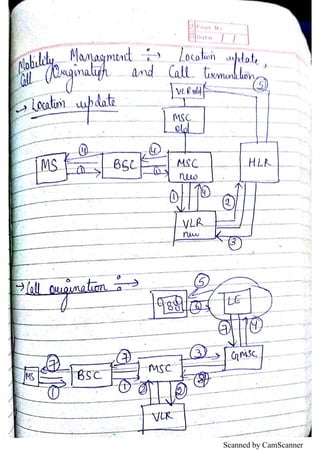 Page No.
Date / /
Mobility Managment :→ Location update,
Call Origination and Call termination
→ Location update
VLR old
5
MSC old
MS
4
1
BSC
4
1
MSC new
HLR
1
4
2
VLR new
3
→ Call origination :→
5
LE
7
4
MS
7
1
BSC
7
1
MSC
3
GMSC
2
VLR
Scanned by CamScanner